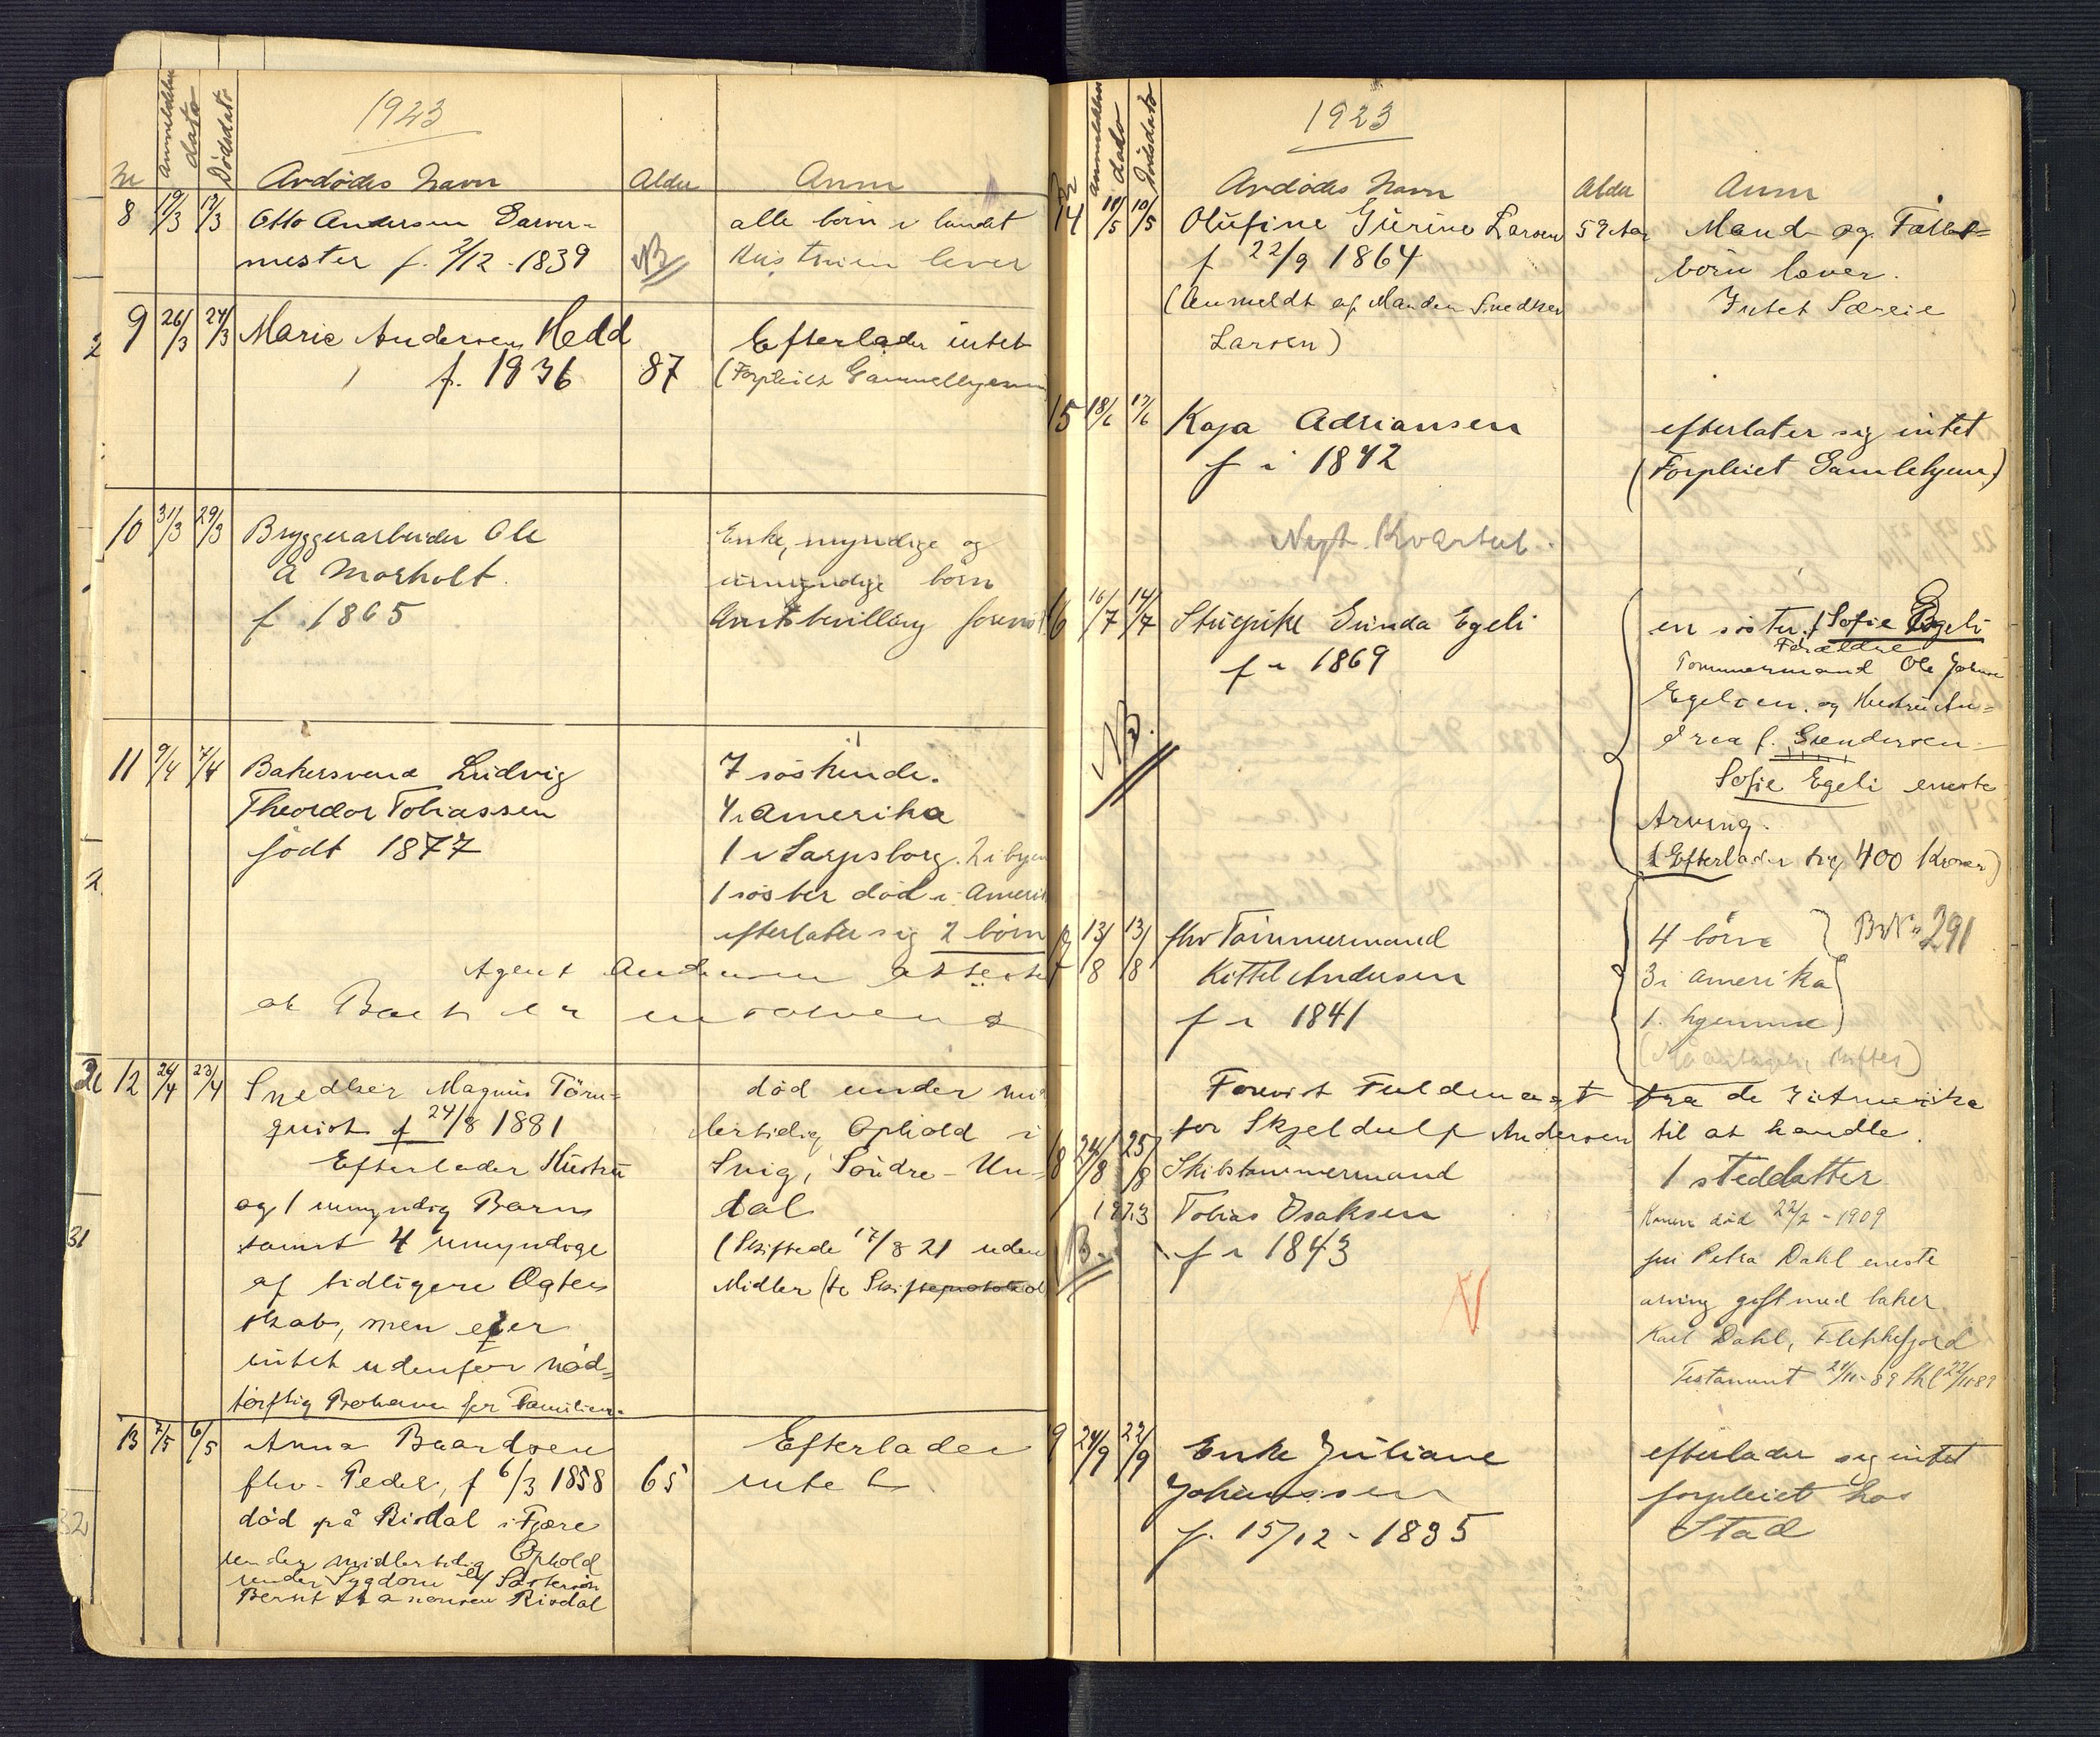 1923
Nr
Anmeldelses
dato
Dødsdato
Avdødes Navn
Alder
Anm
8 19/3 17/3 Otto Andersen Garver=
mester f. 2/12 - 1839
NB
alle børn i landet
Hustruen lever
9 26/3 24/3 Marie Andersen Hedd
f. 1936 87
Efterlader intet
(Forpleiet Gammelhjemm
10 31/3 29/3 Bryggerarbeider Ole
A Morholt.
f 1865
Enke, myndige og
umyndige børn
Amtsbevilling forevist
11 9/4 7/4 Bakersvend Ludvig
Theordor Tobiassen
født 1877
7 søskende.
4 i Amerika
1 i Sarpsborg. 2 i byen
1 søster død i Amerik
efterlater sig 2 børn
Agent Andersen attester
at Boet er insolvens
12 24/4 23/4 Snedker Magnus Törn=
quist f 24/8 1881
Efterlader Hustru
og 1 umyndig Barn
samt 4 umyndige
af tidligere Ægte
skab, men ejer
intet udenfor nød=
tørftig Bohave for Familien.
død under mid
lertidig Ophold i
Svig, Söndre - Un=
dal
(Skiftede 17/8 21 uden
Midler (se Skifteprotokol
13 7/5 6/5 Anna Baardsen
fhv. Peder, f 6/3 1858 65
død på Risdal i Fjære
under midlertidig Ophold
under Sygdom
Risdal
Efterlader
intet
1923
Nr
Anmeldelses
dato
Dødsdato
Avdødes Navn
Alder
Anm
14 11/5 10/5 Olufine Gurine Larsen 59 Aar
f 22/9 1864
(Anmeldt af Manden Snedker
Larsen)
Mand og Fælles=
börn lever.
Intet Særeie
15 18/6 17/6 Kaja Adriansen
f i 1842
efterlater sig intet
(Forpleiet Gamlehjem)
Nyt Kvartal.
6 16/7 14/7 Stuepike Gunda Egeli
f i 1869
NB.
en søster, Sofie Egeli
Forældre
Tømmermand Ole Johan
Egelien. og Hustru An=
drea f. Gundersen
Sofie Egeli eneste
Arving.
(Efterlader sig 400 Kroner)
7 13/8 13/8 fhv Tømmermand
Kittel Andersen
f i 1841
4 børn
3 i Amerika
1. hjemme
291
Forevist Fuldmagt fra de 3 i Amerika
for Skjelduly Andersen til at handle.
8 24/8 25/8 Skibstømmermand
1923 Tobias Isaksen
f i 1843
NB.
1 steddatter
Konen død 22/2 - 1909
fru Petra Dahl eneste
arving gift med baker
Karl Dahl, Flekkefjord
Testament 21/11-89 thl 22/11 89
9 24/9 22/9 Enke Juliane
Johanssen
f. 15/12 - 1835
efterlader sig intet
forpleiet hos
Stad